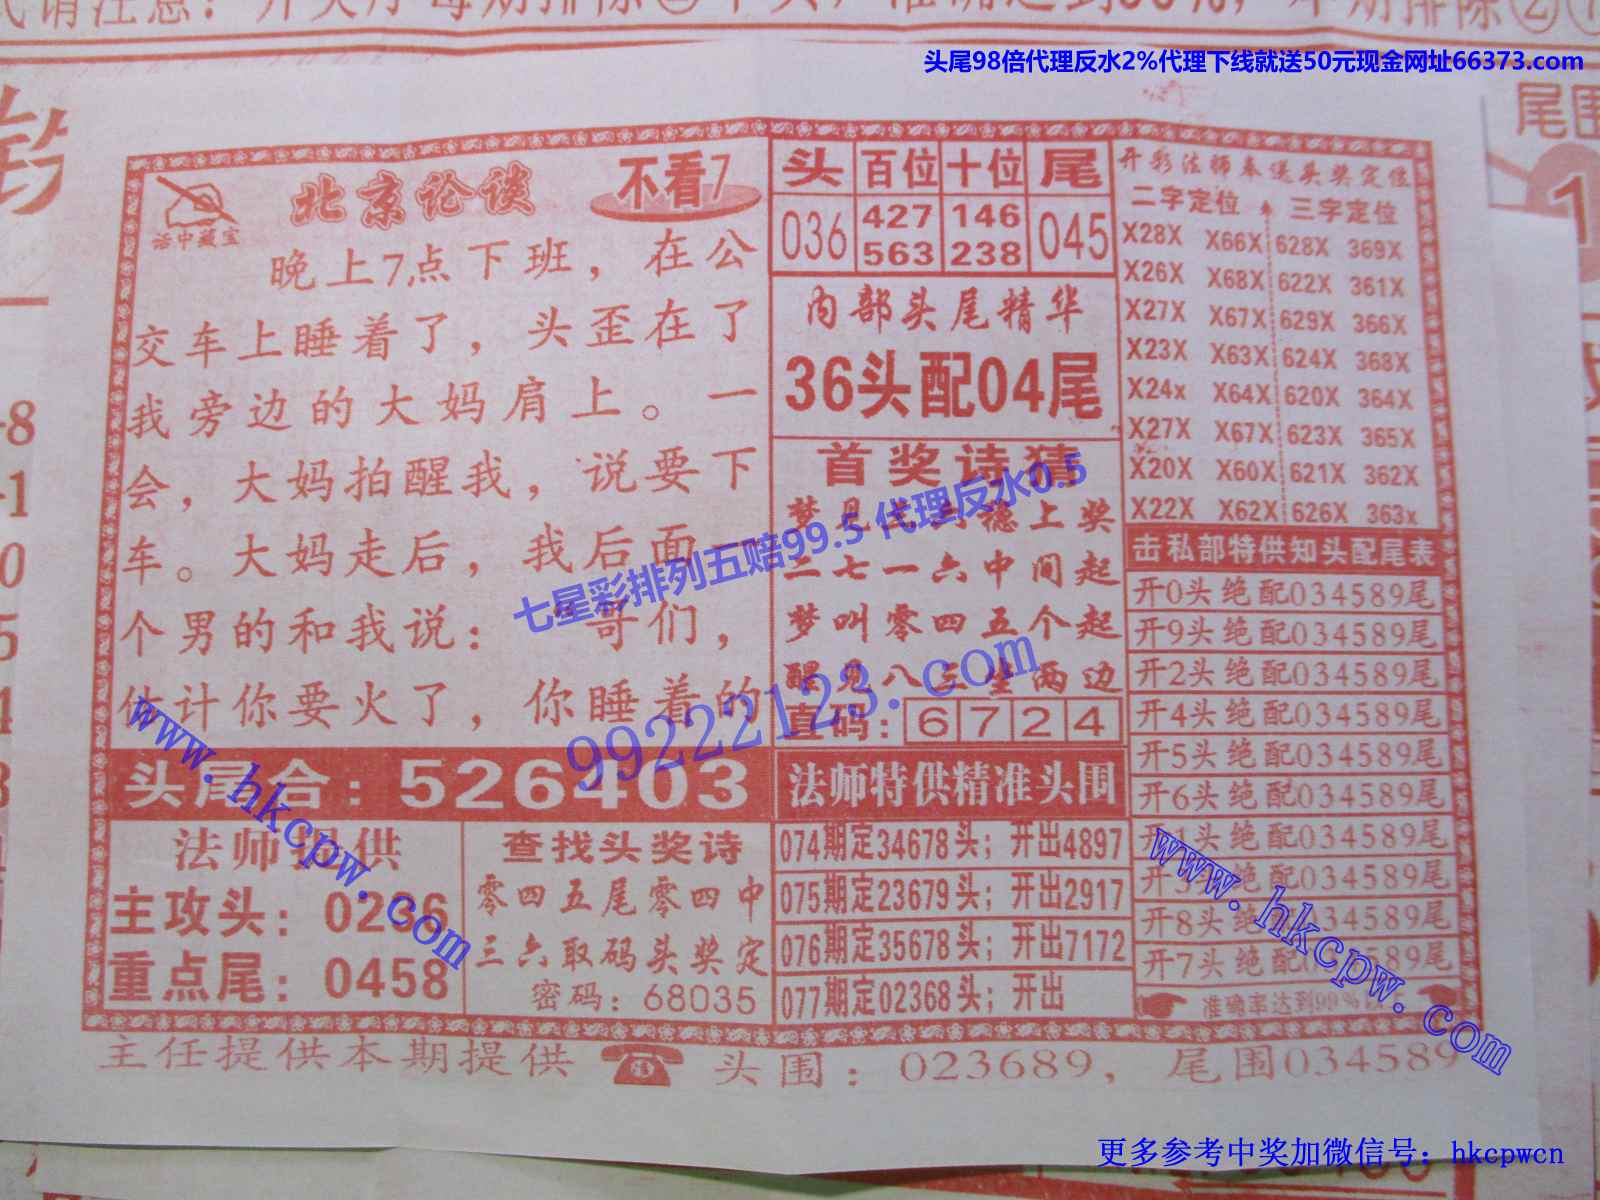 头尾98倍代理反水2%代理下线就送50元现金网址66373.com
尾围
北京论谈
不看7
话中藏宝
晚上7点下班，在公
交车上睡着了，头歪在了
我旁边的大妈肩上。一
会，大妈拍醒我，说要下
车。大妈走后，我后面一
个男的和我说：“哥们，
估计你要火了，你睡着的
头尾合：526403
法师提供
主攻头：0236
重点尾：0458
查找头奖诗
零四五尾零四中
三六取码头奖定
密码：68035
头 百位 十位 尾
036 427 146 045
563 238
内部头尾精华
36头配04尾
首奖诗猜
二七一六中间起
梦叫零四五个起
醒见八三坐两边
直码：6 7 2 4
法师特供精准头围
074期定34678头；开出4897
075期定23679头；开出2917
076期定35678头；开出7172
077期定02368头；开出
开彩法师奉送头奖定位
二字定位 三字定位
X28X X66X 628X 369X
X26X X68X 622X 361X
X27X X67X 629X 366X
X23X X63X 624X 368X
X24x X64X 620X 364X
X27X X67X 623X 365X
X20X X60X 621X 362X
X22X X62X 626X 363x
击私部特供知头配尾表
开0头绝配034589尾
开9头绝配034589尾
开2头绝配034589尾
开4头绝配034589尾
开5头绝配034589尾
开6头绝配034589尾
开1头绝配034589尾
开3头绝配034589尾
开8头绝配034589尾
开7头绝配034589尾
准确率达到99%
主任提供本期提供 头围：023689，尾围034589
七星彩排列五赔99.5 代理反水0.5
99222123.com
www.hkcpw.com
www.hkcpw.com
更多参考中奖加微信号：hkcpwcn